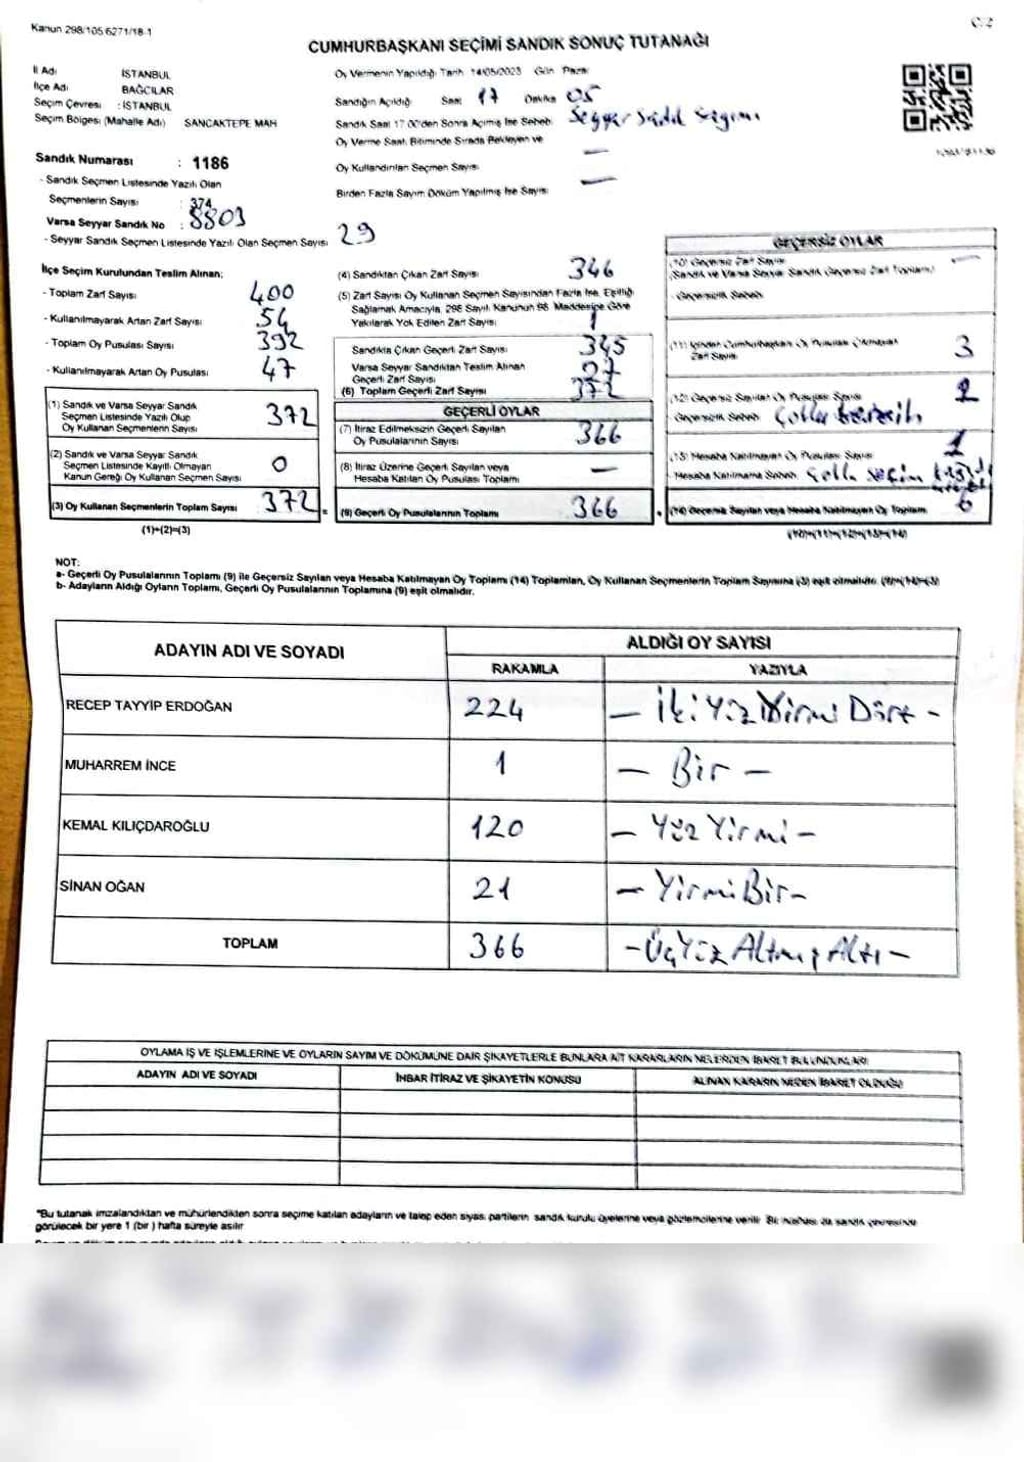 Kanun 298/105 6271/18-1
C/2
CUMHURBAŞKANI SEÇİMİ SANDIK SONUÇ TUTANAĞI
İl Adı İSTANBUL
İlçe Adı BAĞCILAR
Seçim Çevresi : İSTANBUL
Seçim Bölgesi (Mahalle Adı) SANCAKTEPE MAH
Sandık Numarası : 1186
- Sandık Seçmen Listesinde Yazılı Olan
Seçmenlerin Sayısı : 374
Varsa Seyyar Sandık No : 8803
- Seyyar Sandık Seçmen Listesinde Yazılı Olan Seçmen Sayısı 29
Oy Vermenin Yapıldığı Tarih 14/05/2023 Gün Pazar
Sandığın Açıldığı Saat 17 Dakika 05
Sandık Saat 17.00'den Sonra Açılmış İse Sebebi Seyyar Sandık Sayımı
Oy Verme Saati Bitiminde Sırada Bekleyen ve
Oy Kullandırılan Seçmen Sayısı —
Birden Fazla Sayım Döküm Yapılmış İse Sayısı —
İlçe Seçim Kurulundan Teslim Alınan:
- Toplam Zarf Sayısı 400
- Kullanılmayarak Artan Zarf Sayısı 54
- Toplam Oy Pusulası Sayısı 392
- Kullanılmayarak Artan Oy Pusulası 47
(1) Sandık ve Varsa Seyyar Sandık
Seçmen Listesinde Yazılı Olup
Oy Kullanan Seçmenlerin Sayısı 372
(2) Sandık ve Varsa Seyyar Sandık
Seçmen Listesinde Kayıtlı Olmayan
Kanun Gereği Oy Kullanan Seçmen Sayısı 0
(3) Oy Kullanan Seçmenlerin Toplam Sayısı 372
(1)+(2)=(3)
(4) Sandıktan Çıkan Zarf Sayısı 346
(5) Zarf Sayısı Oy Kullanan Seçmen Sayısından Fazla İse, Eşitliği
Sağlamak Amacıyla, 298 Sayılı Kanunun 98. Maddesine Göre
Yakılarak Yok Edilen Zarf Sayısı 1
Sandıkta Çıkan Geçerli Zarf Sayısı 345
Varsa Seyyar Sandıktan Teslim Alınan
Geçerli Zarf Sayısı 27
(6) Toplam Geçerli Zarf Sayısı 372
GEÇERLİ OYLAR
(7) İtiraz Edilmeksizin Geçerli Sayılan
Oy Pusulalarının Sayısı 366
(8) İtiraz Üzerine Geçerli Sayılan veya
Hesaba Katılan Oy Pusulası Toplamı —
(9) Geçerli Oy Pusulalarının Toplamı 366
GEÇERSİZ OYLAR
(10) Geçersiz Zarf Sayısı —
(Sandık ve Varsa Seyyar Sandık Geçersiz Zarf Toplamı)
- Geçersizlik Sebebi
(11) İçinden Cumhurbaşkanı Oy Pusulası Çıkmayan
Zarf Sayısı 3
(12) Geçersiz Sayılan Oy Pusulası Sayısı 2
Geçersizlik Sebebi Çoklu
(13) Hesaba Katılmayan Oy Pusulası Sayısı 1
Hesaba Katılmama Sebebi Çoklu seçim
(14) Geçersiz Sayılan veya Hesaba Katılmayan Oy Toplamı 6
(10)+(11)+(12)+(13)=(14)
NOT:
a- Geçerli Oy Pusulalarının Toplamı (9) ile Geçersiz Sayılan veya Hesaba Katılmayan Oy Toplamı (14) Toplamları, Oy Kullanan Seçmenlerin Toplam Sayısına (3) eşit olmalıdır. (9)+(14)=(3)
b- Adayların Aldığı Oyların Toplamı, Geçerli Oy Pusulalarının Toplamına (9) eşit olmalıdır.
ADAYIN ADI VE SOYADI ALDIĞI OY SAYISI
RAKAMLA YAZIYLA
RECEP TAYYİP ERDOĞAN 224 — İki Yüz Yirmi Dört -
MUHARREM İNCE 1 — Bir —
KEMAL KILIÇDAROĞLU 120 — Yüz Yirmi —
SİNAN OĞAN 21 — Yirmi Bir -
TOPLAM 366 - Üç Yüz Altmış Altı —
OYLAMA İŞ VE İŞLEMLERİNE VE OYLARIN SAYIM VE DÖKÜMÜNE DAİR ŞİKAYETLERLE BUNLARA AİT KARARLARIN NELERDEN İBARET BULUNDUKLARI
ADAYIN ADI VE SOYADI İHBAR İTİRAZ VE ŞİKAYETİN KONUSU ALINAN KARARIN NEDEN İBARET OLDUĞU
"Bu tutanak imzalandıktan ve mühürlendikten sonra seçime katılan adayların ve talep eden siyasi partilerin sandık kurulu üyelerine veya gözlemcilerine verilir. Bir nüshası da sandık çevresinde
görülecek bir yere 1 (bir) hafta süreyle asılır